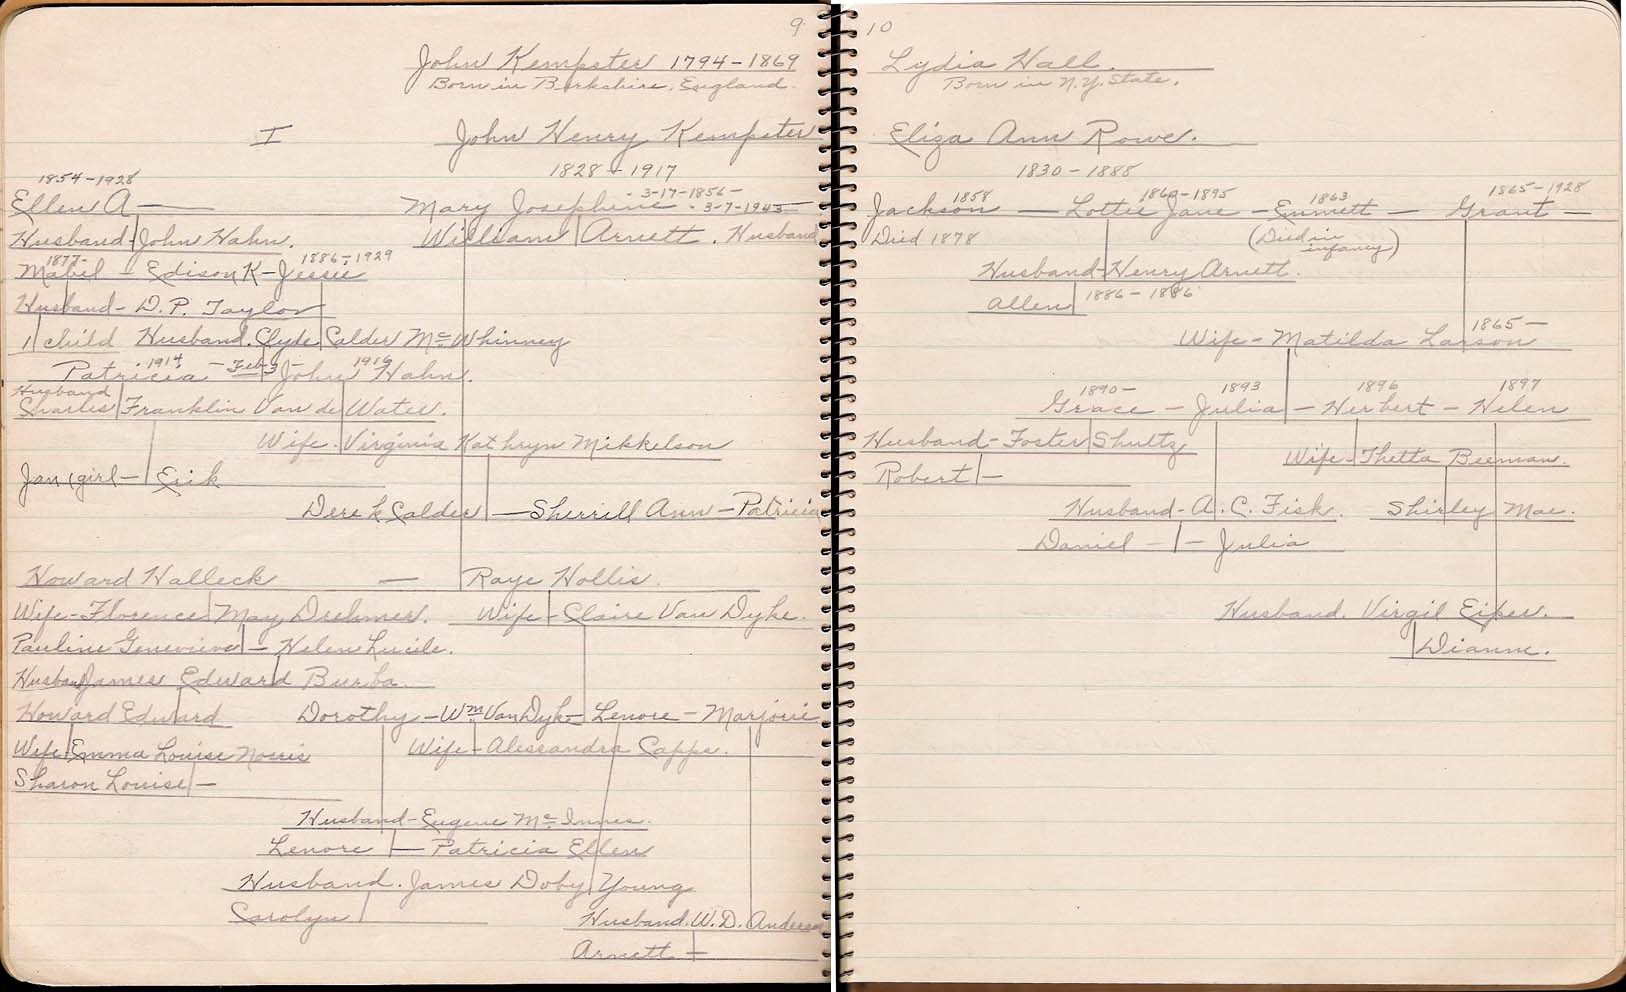 9
John Kempster 1794-1869
Born in Berkshire, England.
I
John Henry Kempster
1828-1917
1854-1928
Ellen A —
Mary Josephine - 3-17-1856 - 3-7-1943 —
Husband - John Hahn.
William Arnett. Husband
1877-
1886-1929
Mabel - Edison K - Jessie
Husband - D.P. Taylor
1 child Husband. Clyde Calder McWhinney
Patricia 1914 - Feb-3 - John Hahn. 1916
Husband
Charles Franklin Van de Water.
Wife. Virginia Kathryn Mikkelson
Jan (girl - Erik
Derek Calder - Sherrill Ann - Patricia
Howard Halleck — Raye Hollis.
Wife - Florence May Drehmer. Wife - Claire Van Dyke.
Pauline Genevieve - Helen Lucile.
Husband James Edward Burba.
Howard Edward
Dorothy - Wm Van Dyke - Lenore - Marjorie
Wife Emma Louise Norris
Wife - Alessandra Capps.
Sharon Louise -
Husband - Eugene McInnes.
Lenore - Patricia Ellen
Husband. James Doby Young
Carolyn
Husband. W.D. Anderson
Arnett -
10
Lydia Hall.
Born in N.Y. State.
Eliza Ann Rowe.
1830-1888
1858
1860-1895
1863
1865-1928
Jackson — Lottie Jane - Emmett - Grant -
Died 1878
(Died in infancy)
Husband - Henry Arnett.
Allen 1886-1886
1865-
Wife - Matilda Larson
1890-
1893
1896
1897
Grace - Julia - Herbert - Helen
Husband - Foster Shultz
Wife - Thetta Beeman.
Robert -
Husband - A.C. Fisk.
Shirley Mae.
Daniel - - Julia
Husband. Virgil Eiper.
Dianne.